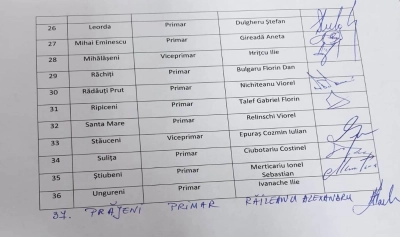 26 Leorda Primar Dulgheru Ștefan
27 Mihai Eminescu Primar Gireadă Aneta
28 Mihălășeni Viceprimar Hrițcu Ilie
29 Răchiți Primar Bulgaru Florin Dan
30 Rădăuți Prut Primar Nichiteanu Viorel
31 Ripiceni Primar Talef Gabriel Florin
32 Santa Mare Primar Relinschi Viorel
33 Stăuceni Viceprimar Epuraș Cozmin Iulian
34 Sulița Primar Ciubotariu Costinel
35 Știubeni Primar Merticariu Ionel Sebastian
36 Ungureni Primar Ivanache Ilie
37. PRĂJENI PRIMAR RĂILEANU ALEXANDRU